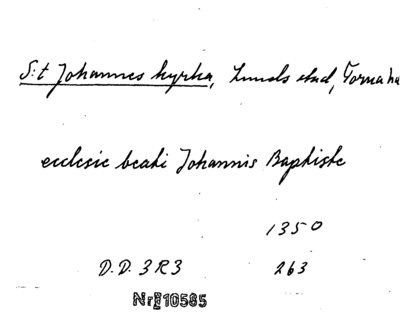 S:t Johannes kyrka, Lunds stad, Torna hd
ecclesie beati Johannis Baptiste
1350
D.D. 3R3 263
Nr 10585